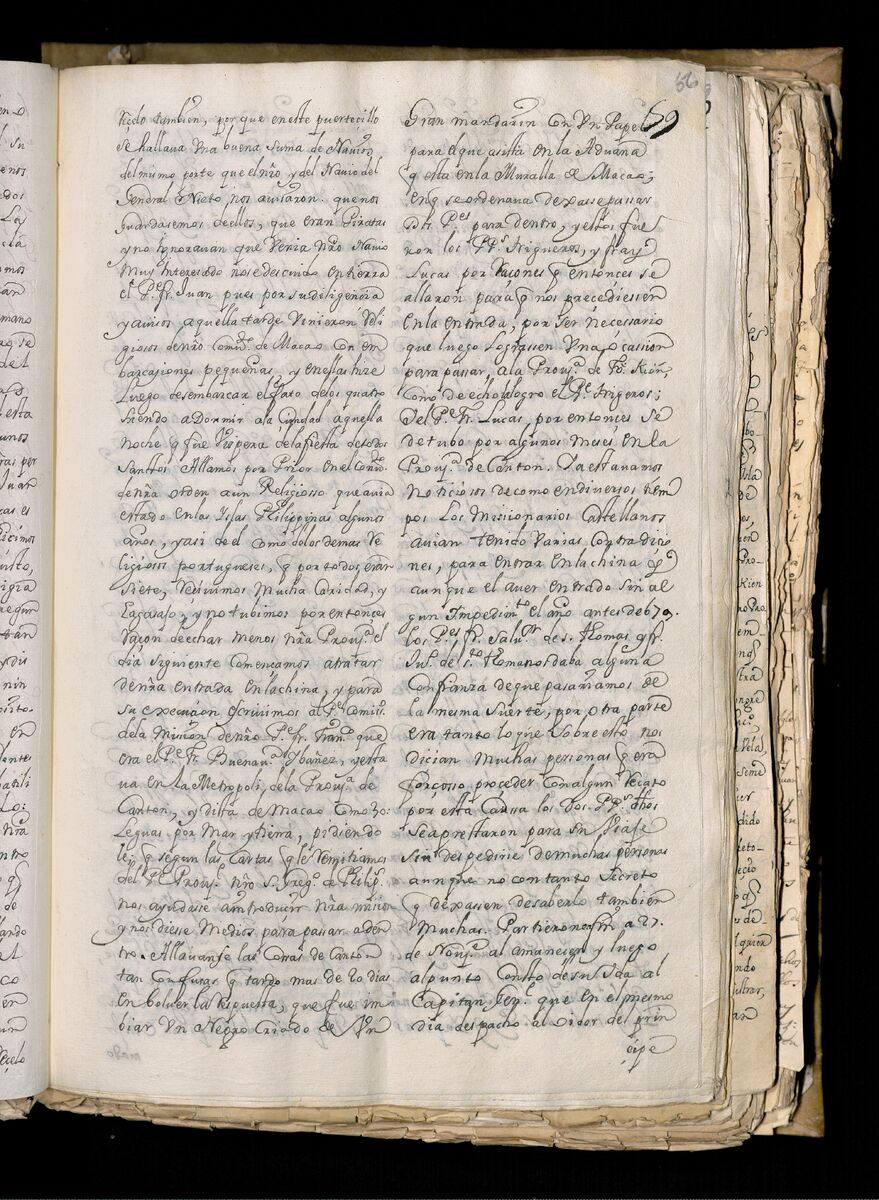 56
59
tezelo tambien, por que en este puertecillo
se hallaua vna buena suma de Nauios
del mismo porte que el nro y del Nauio del
General Nieto, nos auisaron que nos
guardasemos de ellos, que eran Piratas
y no ignorauan que Venia nro Nauio
muy Interesado
el Pe. fr. Juan pues por su diligencia
y auisos aquella tarde Vinieron Reli
giosos de nro Convto. de Macao con em
barcasiones pequeñas, y en ellas hize
Luego desembarcar el fato de los quatro
siendo a Dormir a la Ciudad aquella
noche q fue Vispera de la fiesta de todos
Santtos Allamos por Prior en el Convto.
de nra orden a un Religiosso que auia
estado en las Islas Philippinas algunos
años, y asi de el como de los demas Re
ligiosos portugueses, q por todos eran
siete, Reciuimos mucha Caridad, y
Eagasajo; y no tubimos por entonces
Raçon de echar menos nra Prouya. el
dia siguiente Comencamos a tratar
de nra entrada en la china, y para
su execucion escriuimos al Pe. Comisso.
de la Mision de nro Pe. fr. Franco. que
era el Pe. fr. Buenaua. Ybañez, y esta
ua en la Metropoli de la Proua. de
Canton, y dista de Macao como 30:
Leguas por Mar y tierra, pidiendo
le; q segun las Cartas q le remitiamos
del Pe. Prouyl. nro S. Grego. de Philips.
nos ayudase a introducir nra mision
y nos diesse Medios para passar aden
tro. Allauanse las Cosas de Canton
tan Confusas q tardo mas de 20 dias
en boluer la Respuesta, que fue im
biar Vn Negro Criado de Vn
Gran mandarin con Vn Papel
para el que asista en la Aduana
q esta en la Muralla de Macao;
en q se ordenaua dexasse passar
Dos Pes. para dentro, y estos fue
ron los Ps. Nigueros, y fray
Lucas por raçones q entonces se
allaron para q nos precediessen
en la entrada, por ser necessario
que luego Lograssen Vna ocassion
para passar, a la Prouya. de Fo. Kien,
como de echo la logro el Pe. Nigeros;
el Pe. Fr. Lucas, por entonces se
detubo por algunos meses, en la
Prouya. de Canton. Ya estauamos
noticiosos de como en diuersos tiem
pos Los Missionarios Castellanos
auian tenido Varias Contradicio
nes, para entrar en la china y
aunque el auer entrado sin al
gun Impedimto. el año antes de 679.
los Pes. fr. Saluor. de S. Thomas y fr.
Jun. de Sto. Thome nos daba alguna
Confianza de que pasariamos de
la mesma suerte, por otra parte
era tanto lo que sobre esto nos
dician muchas personas q era
forçosso proceder con algun recato
por esta Causa los Dos Ps. dhos
se aprestaron para su Viaje
sin despedirse de muchas personas
aunque no con tanto secreto
q dexassen de saberlo tambien
muchas. Partieronse a 27.
de Nouye. al amanecer y luego
al punto Consto de su yda al
Capitan Genl. que en el mesmo
dia despacho al oidor del prin
cipe